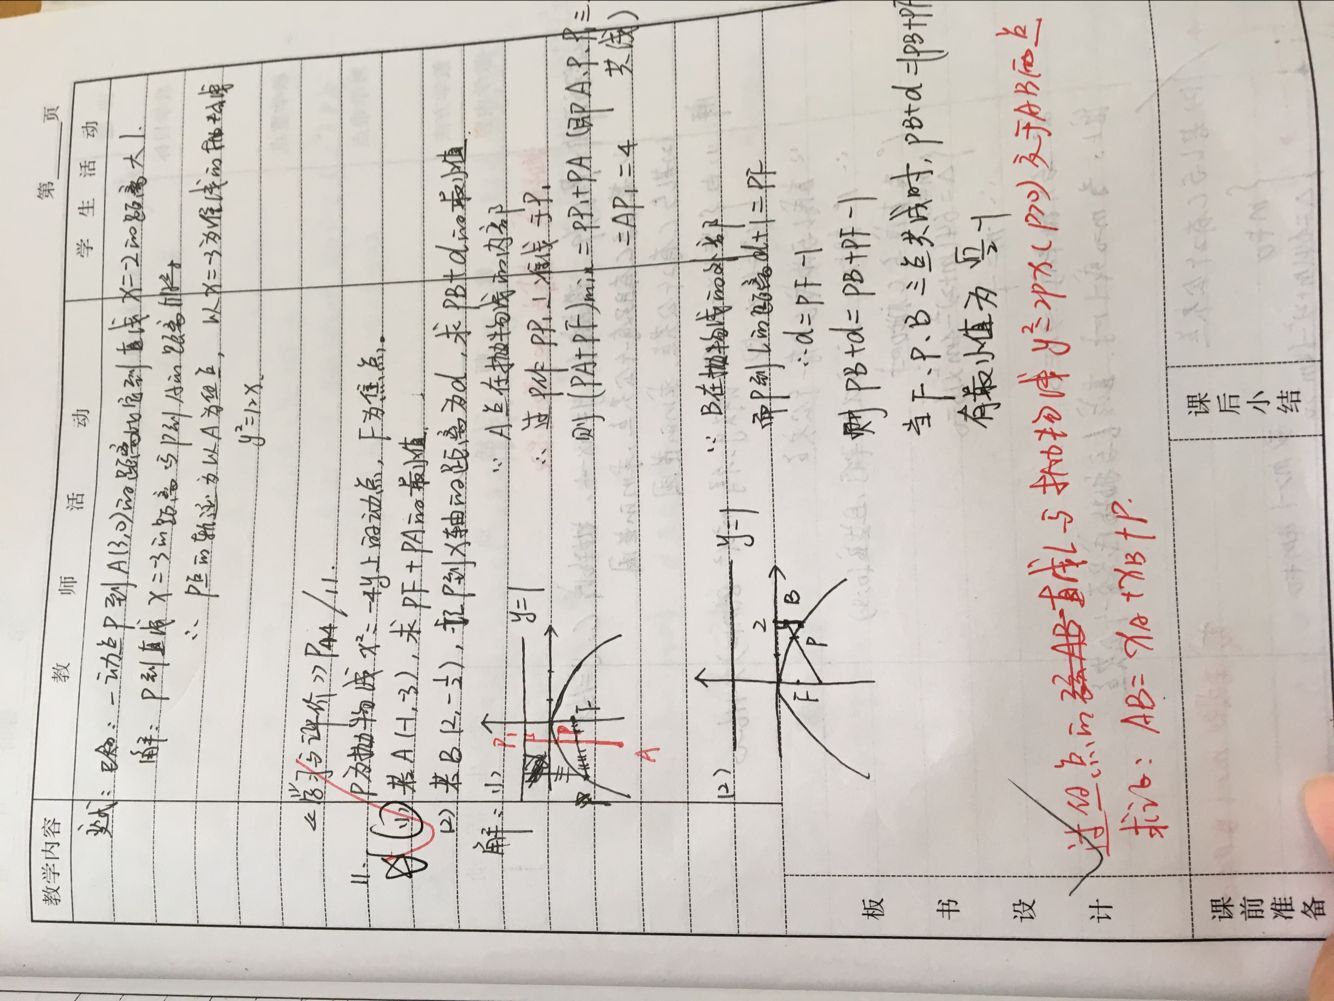 第 页
教学内容
教 师 活 动
学 生 活 动
变式：已知：一动点P到A(3,0)的距离比它到直线x=-2的距离大1.
解：P到直线x=-3的距离与P到A的距离相等。
∴ P点的轨迹为以A为焦点，以x=-3为准线的抛物线
y²=12x.
《学习与评价》P44/11.
11. P为抛物线x²=-4y上的动点，F为焦点。
(1) 若A(-1,-3)，求PF+PA的最小值.
(2) 若B(2,-½)，记P到x轴的距离为d，求PB+d的最小值
解：(1)
y=1
P₁
P
F
A
∵ A点在抛物线的内部
∴ 过P作PP₁⊥准线于P₁
则(PA+PF)min=PP₁+PA(即P、A、P₁三
=AP₁=4 共线)
(2)
y=1
2
B
P
F
∵ B在抛物线的外部
而P到l的距离d+1=PF
∴d=PF-1
则PB+d=PB+PF-1
当F、P、B三点共线时，PB+d=(PB+PF
有最小值为
过焦点的直线L与抛物线y²=2px(p>0)交于AB两点
求证：AB=xA+xB+P.
板 书 设 计
课后小结
课前准备